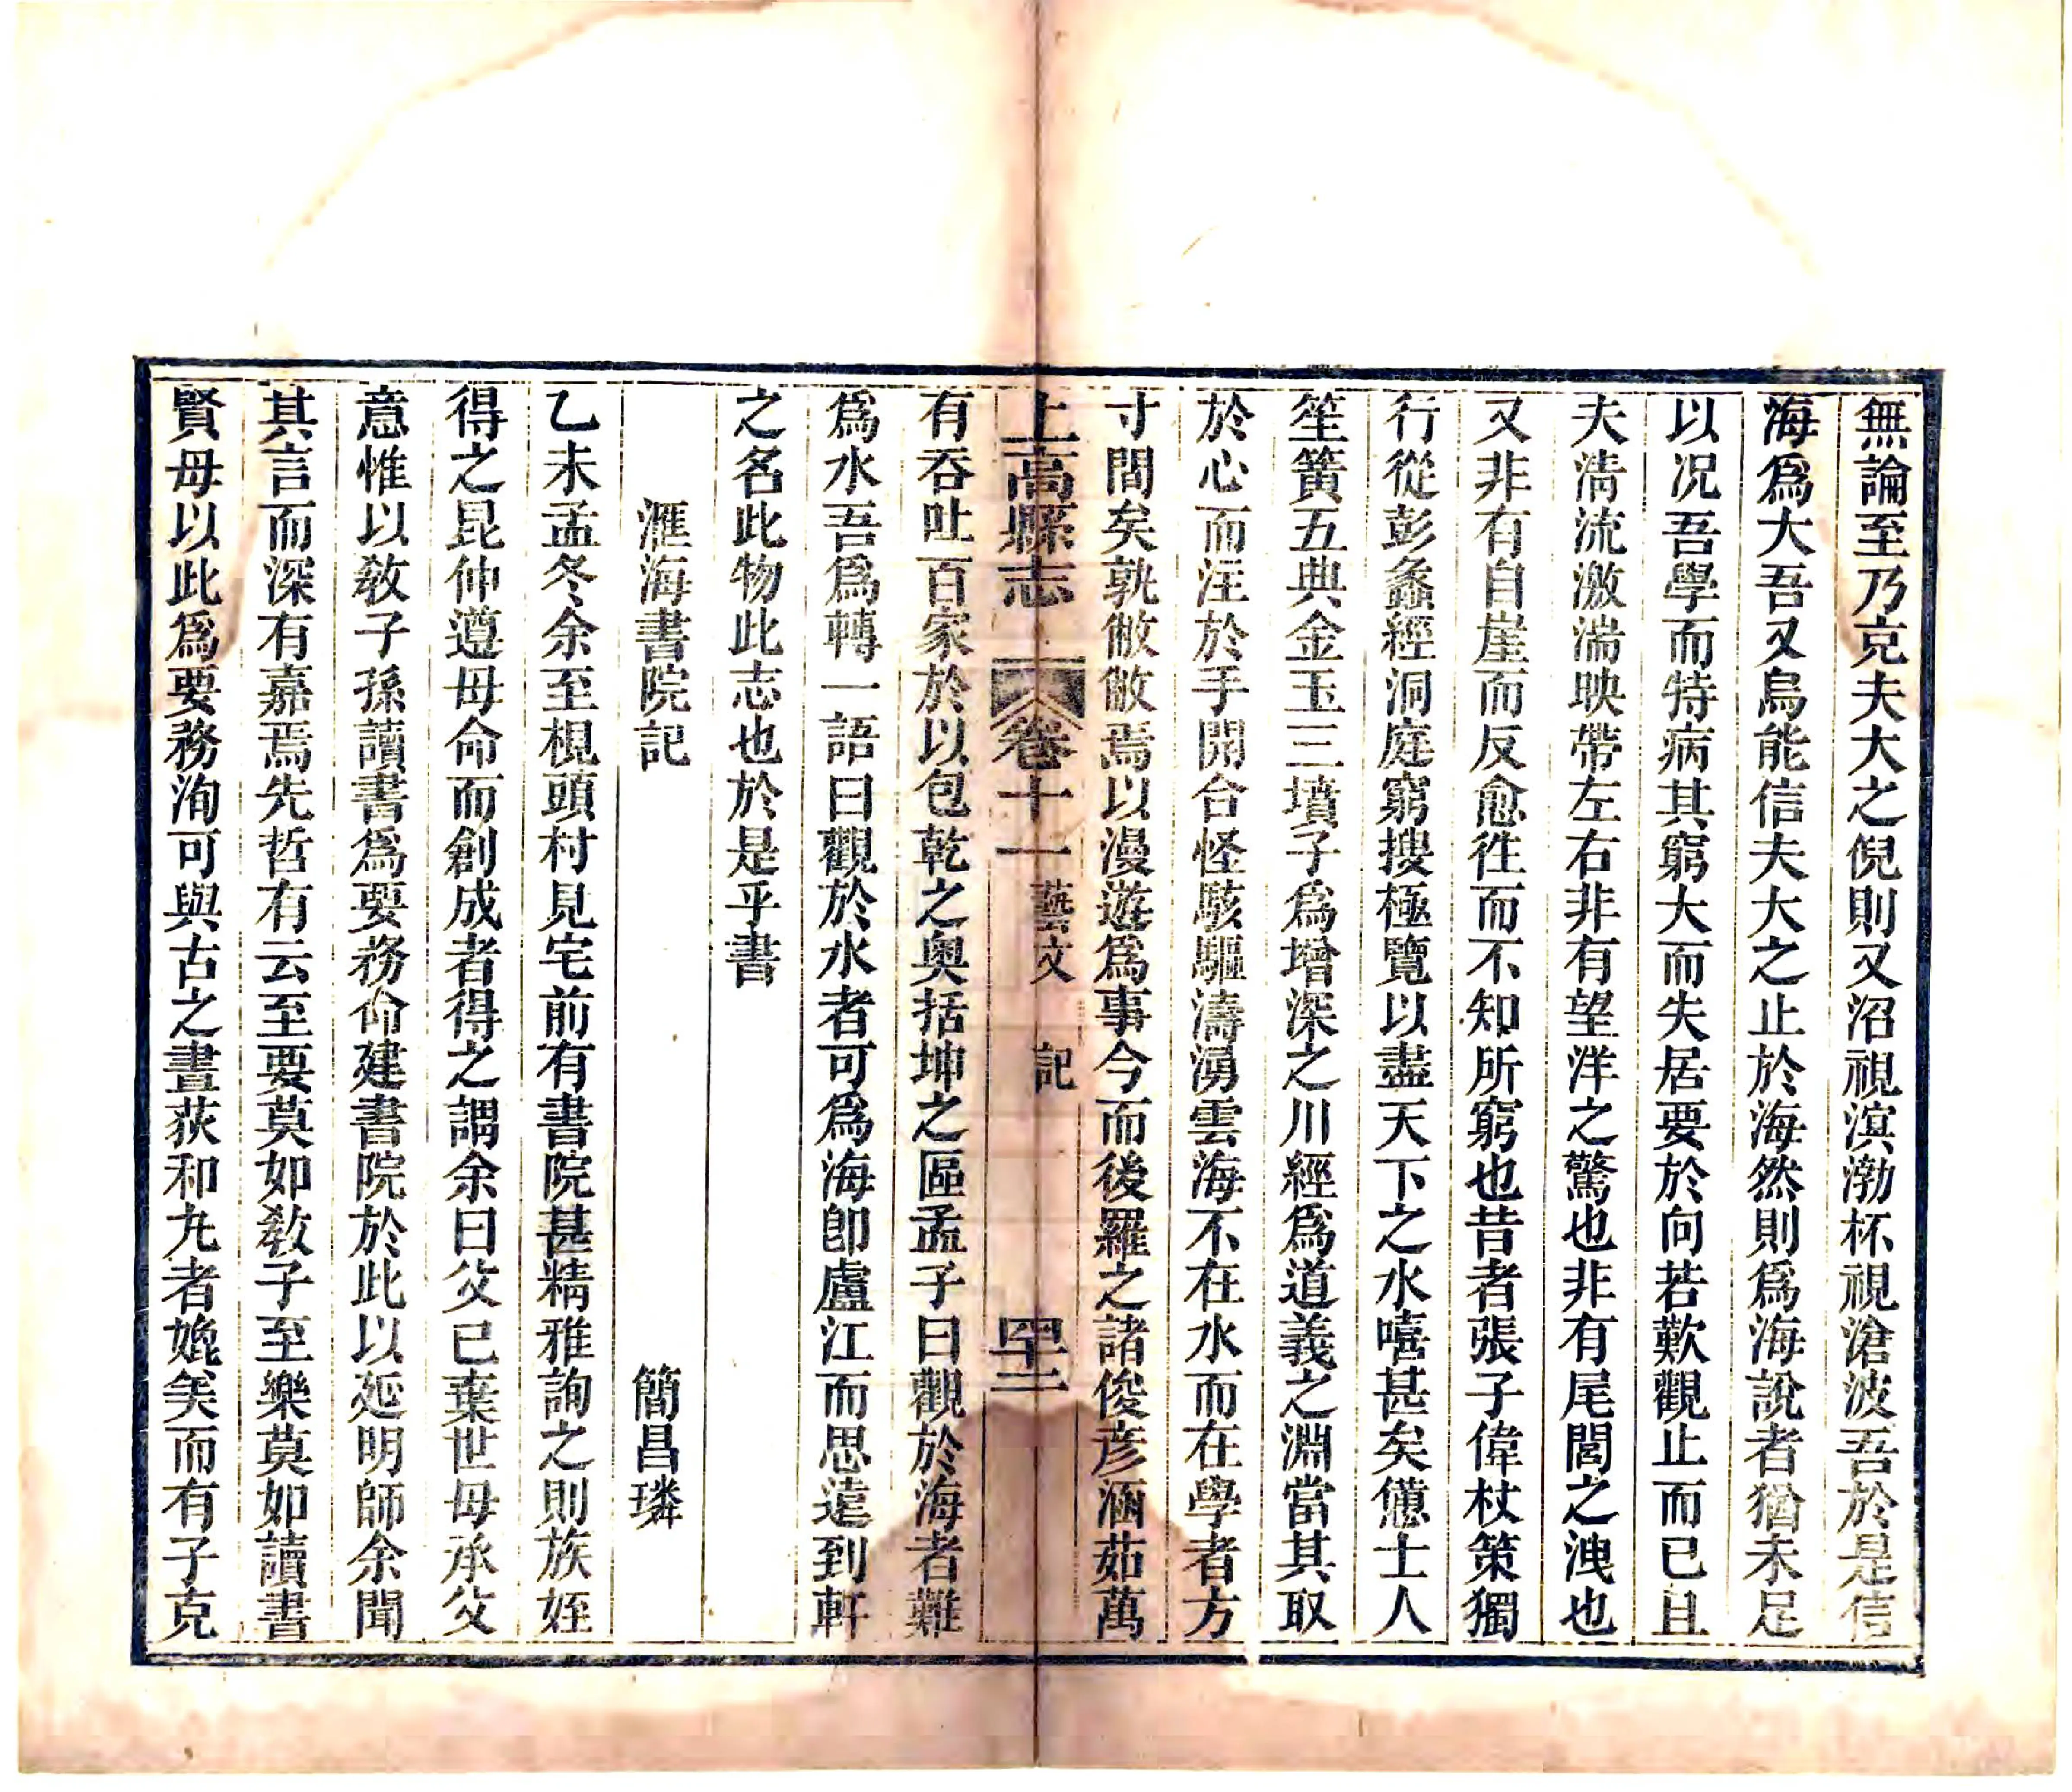 無論至乃克夫大之倪則又沼視溟渤杯視滄波吾於是信
海爲大吾又烏能信夫大之止於海然則爲海說者猶未足
以况吾學而特病其窮大而失居要於向若歎觀止而已且
夫淸流激湍映帶左右非有望洋之驚也非有尾閭之洩也
又非有自崖而反愈徃而不知所窮也昔者張子偉杖策獨
行從彭蠡經洞庭窮搜極覽以盡天下之水嘻甚矣憊士人
笙簧五典金玉三墳子爲增深之川經爲道義之淵當其取
於心而注於手開合怪駭驅濤湧雲海不在水而在學者方
寸間矣孰敝敝焉以漫遊爲事今而後羅之諸俊彦涵茹萬
上高縣志 卷十一 藝文 記 四十二
有吞吐百家於以包乾之奥括坤之區孟子曰觀於海者難
爲水吾爲轉一語曰觀於水者可爲海卽盧江而思遠到軒
之名此物此志也於是乎書
滙海書院記 簡昌璘
乙未孟冬余至梘頭村見宅前有書院甚精雅詢之則族姪
得之昆仲遵母命而創成者得之謂余曰父已棄世母承父
意惟以敎子孫讀書爲要務命建書院於此以延明師余聞
其言而深有嘉焉先哲有云至要莫如敎子至樂莫如讀書
賢母以此爲要務洵可與古之畫荻和丸者媲美而有子克